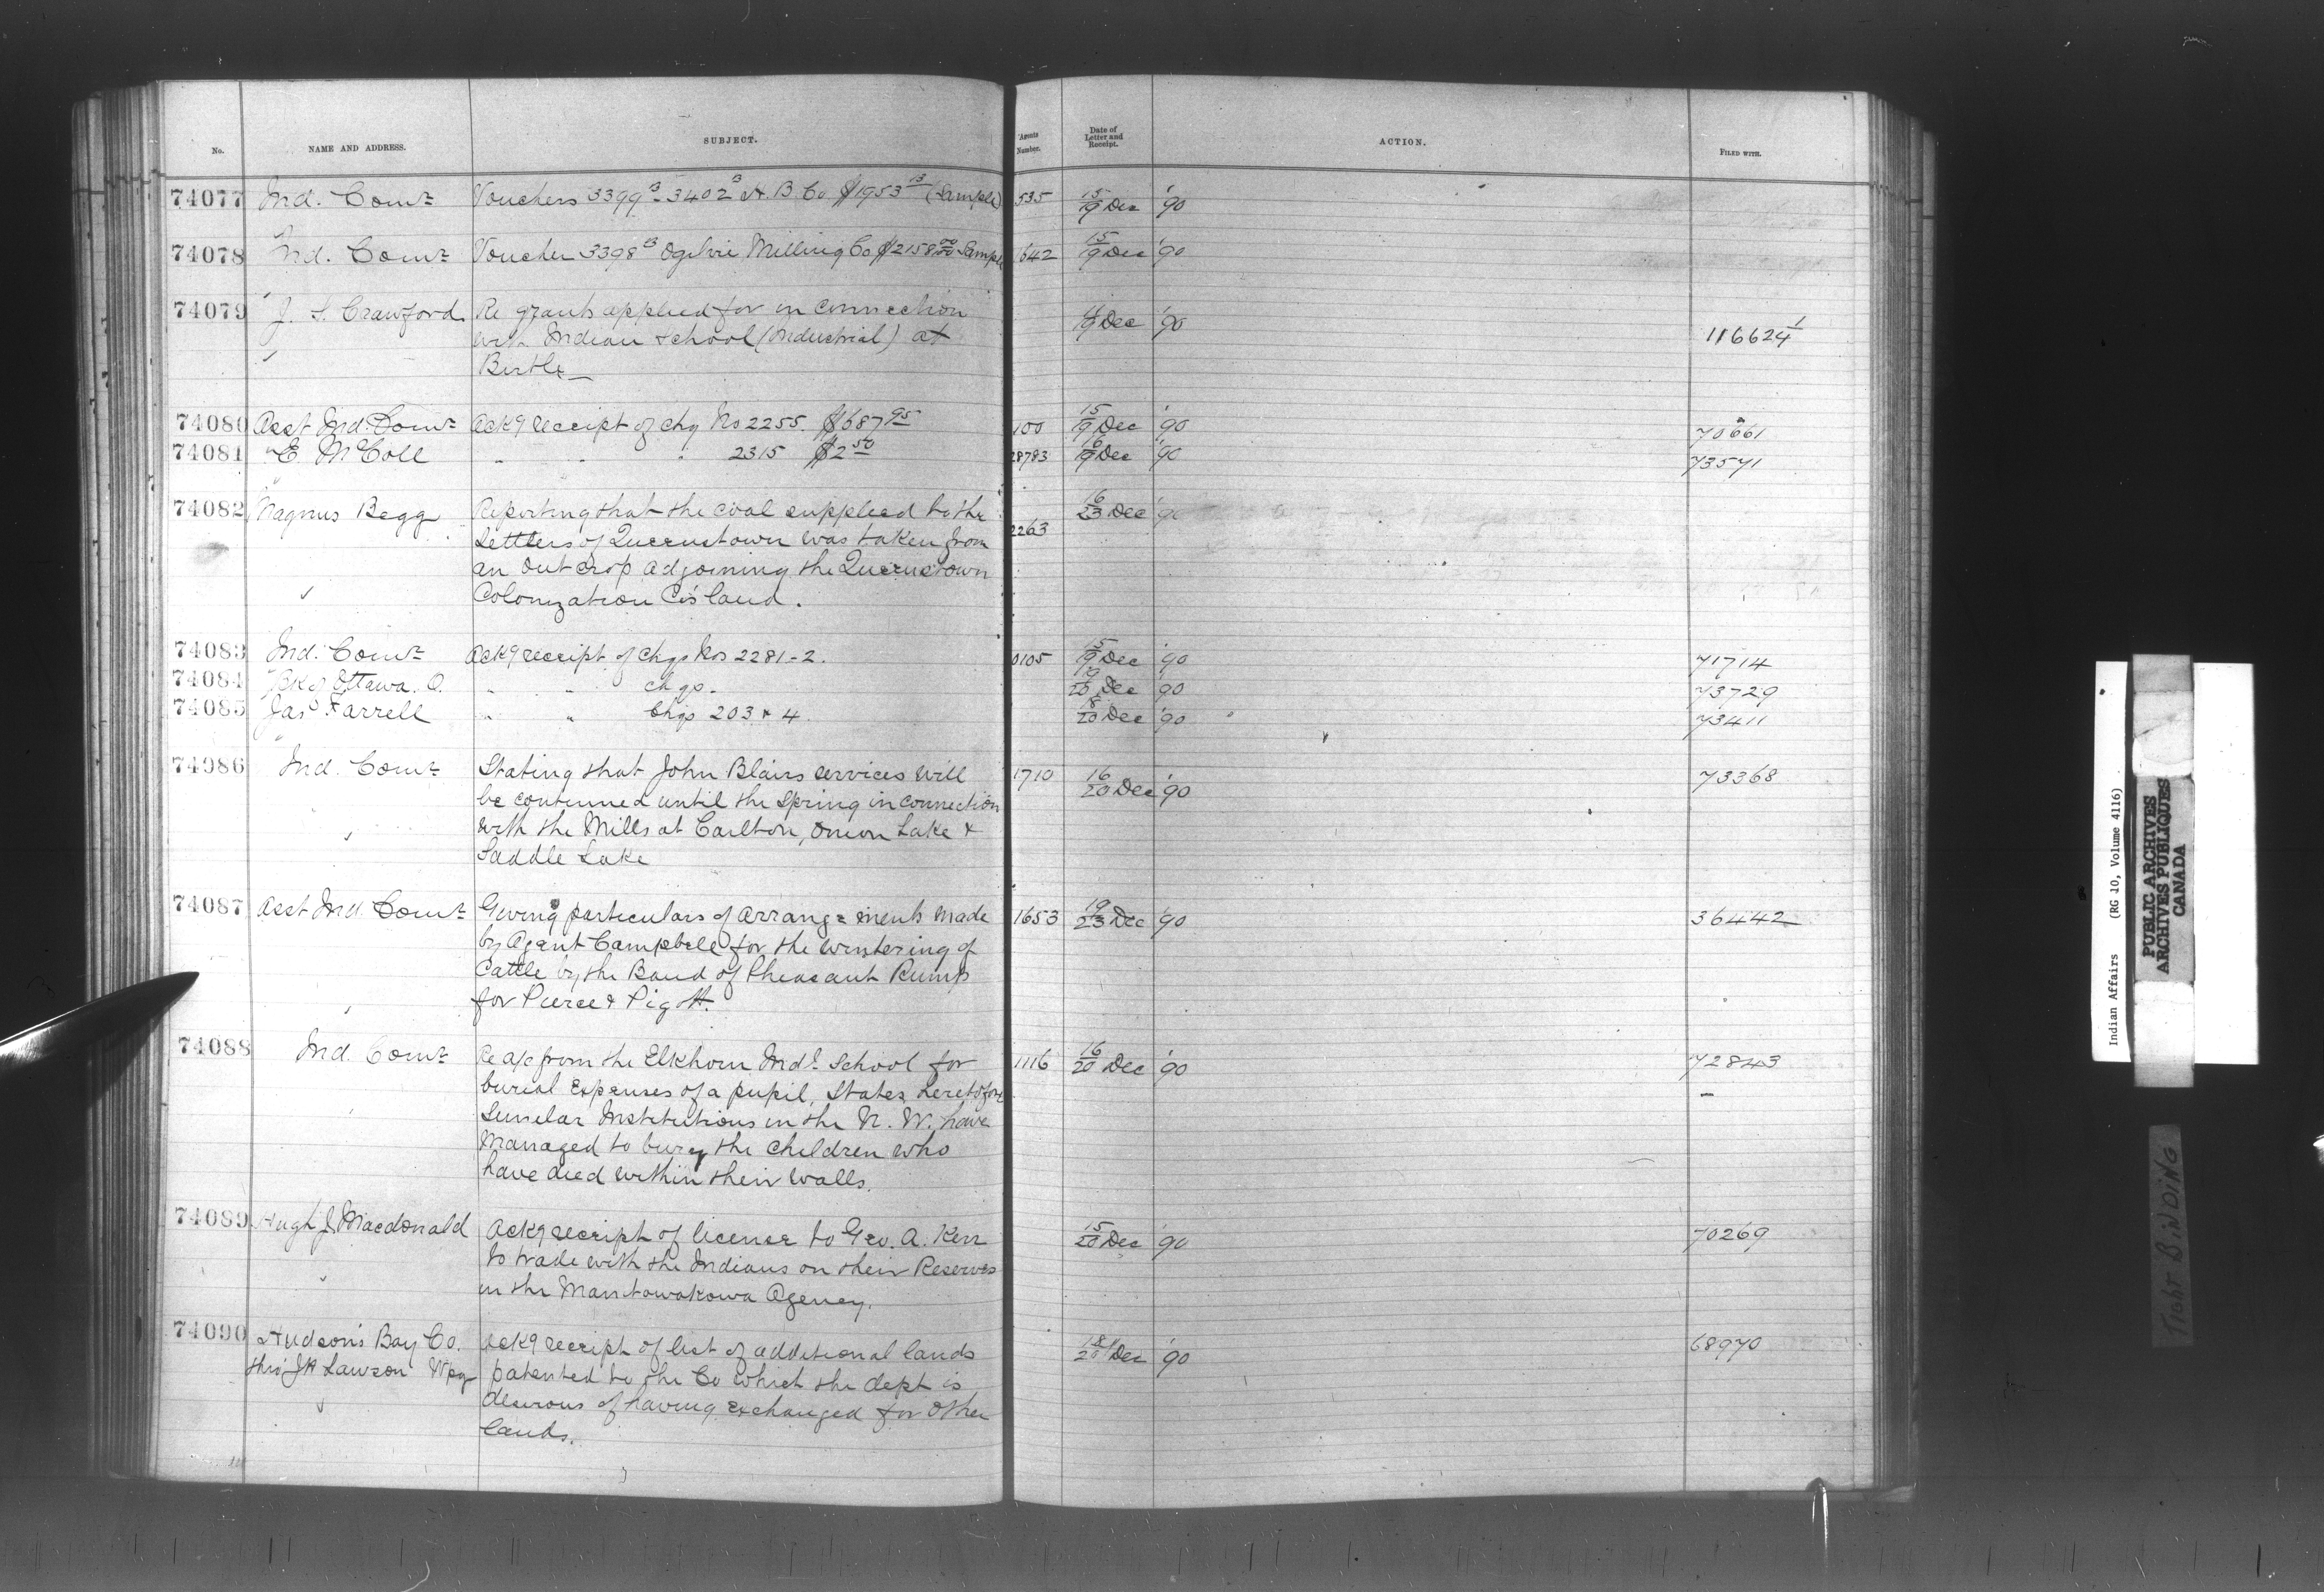 No. NAME AND ADDRESS. SUBJECT. Agents Number. Date of Letter and Receipt. ACTION. FILED WITH.
74077 Ind. Comr Vouchers 3399 B - 3402 B H. B. Co. $1953 13 (Sample) 535 15/19 Dec '90
74078 Ind. Comr Voucher 3398 B Ogilvie Milling Co $2158 00 Sample 1642 15/19 Dec '90
74079 J. S. Crawford. Re grants applied for in connection 19 Dec '90
with Indian school (Industrial) at 116624-1
Birtle
74080 Asst Ind. Comr Ackg receipt of chq No 2255. $687 95 100 15/19 Dec '90 70661
74081 E. McColl " " " 2315 $2 50 28783 16/19 Dec '90 73571
74082 Magnus Begg Reporting that the coal supplied to the 2263 16/23 Dec '90
Settlers of Queenstown was taken from
an out crop adjoining the Queenstown
Colonization Co's land.
74083 Ind. Comr Ackg receipt of chqs Nos 2281-2. 0105 15/19 Dec '90 71714
74084 Bk of Ottawa. O. " " chqs. 19/20 Dec '90 73729
74085 Jas Farrell " " Chqs 203 & 4. 18/20 Dec '90 73411
74086 Ind. Comr Stating that John Blairs services will 1710 16/20 Dec '90 73368
be continued until the Spring in connection
with the Mills at Carlton, Onion Lake &
Saddle Lake
74087 Asst Ind. Comr Giving particulars of arrange=ments made 1653 19/23 Dec '90 36442
by Agent Campbell for the wintering of
Cattle by the Band of Pheasant Rump
for Pierce & Pigott.
74088 Ind. Comr Re a/c from the Elkhorn Indl School for 1116 16/20 Dec '90 72843
burial Expenses of a pupil, States, heretofore
Similar Institutions in the N. W. have
Managed to bury the children who
have died within their walls.
74089 Hugh J. Macdonald Ackg receipt of license to Geo. A. Kerr 15/20 Dec '90 70269
to trade with the Indians on their Reserves
in the Manitowakowa Agency.
74090 Hudson's Bay Co. Ackg receipt of list of additional lands 18/20 Dec '90 68970
thro' JH Lawson Wpg patented to the Co which the dept is
desirous of having exchanged for other
lands.
Indian Affairs (RG 10, Volume 4116)
PUBLIC ARCHIVES
ARCHIVES PUBLIQUES
CANADA
TIGHT BINDING